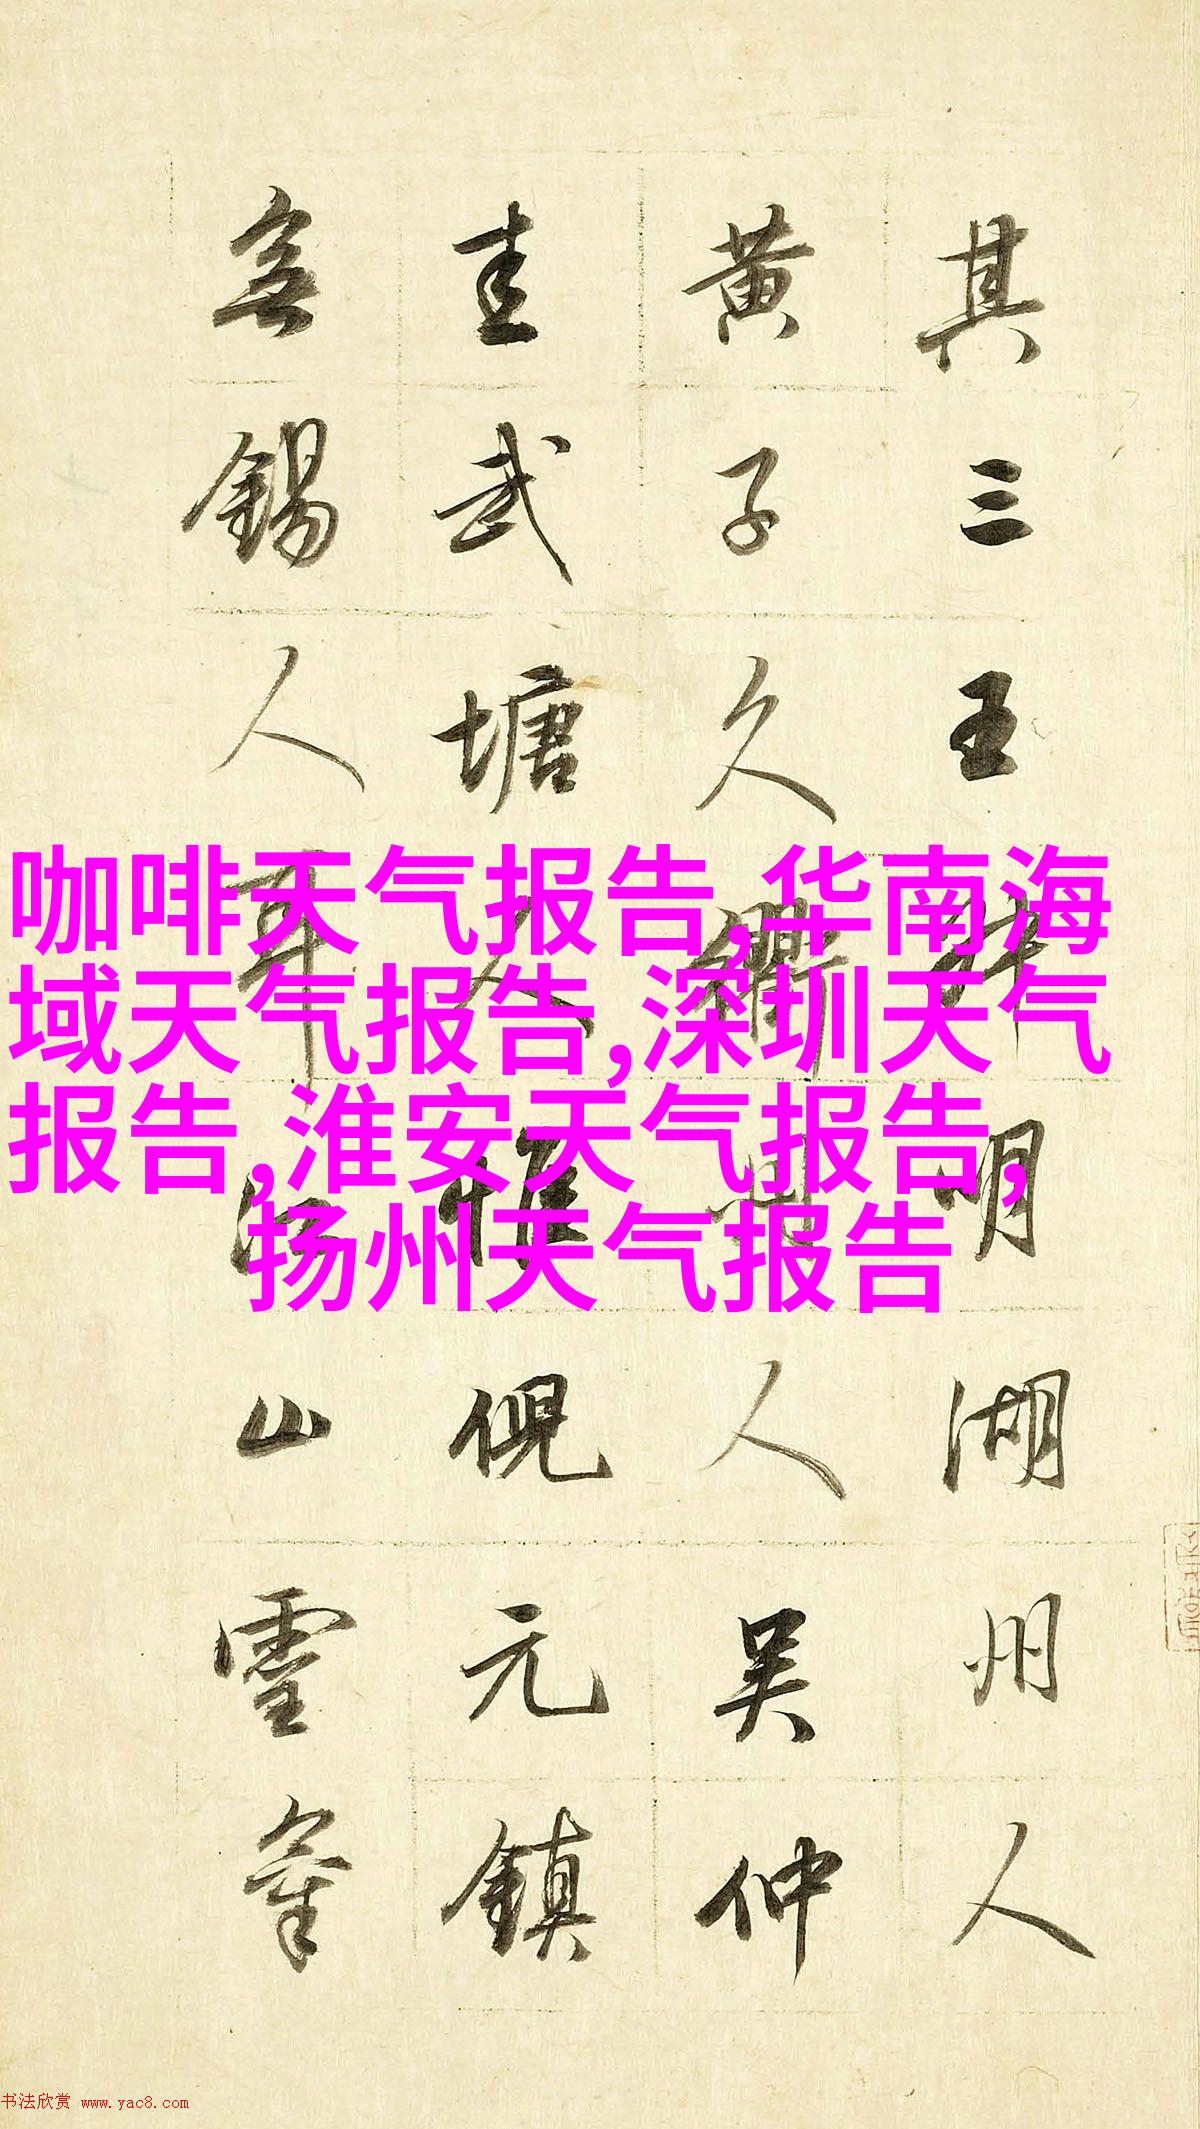 其三王叔明湖州人
黄子久衢州人吴仲
圭武塘人惟倪元鎮
無錫人耳江山靈氣
咖啡天气报告,华南海
域天气报告,深圳天气
报告,淮安天气报告,
扬州天气报告
书法欣赏 www.yac8.com